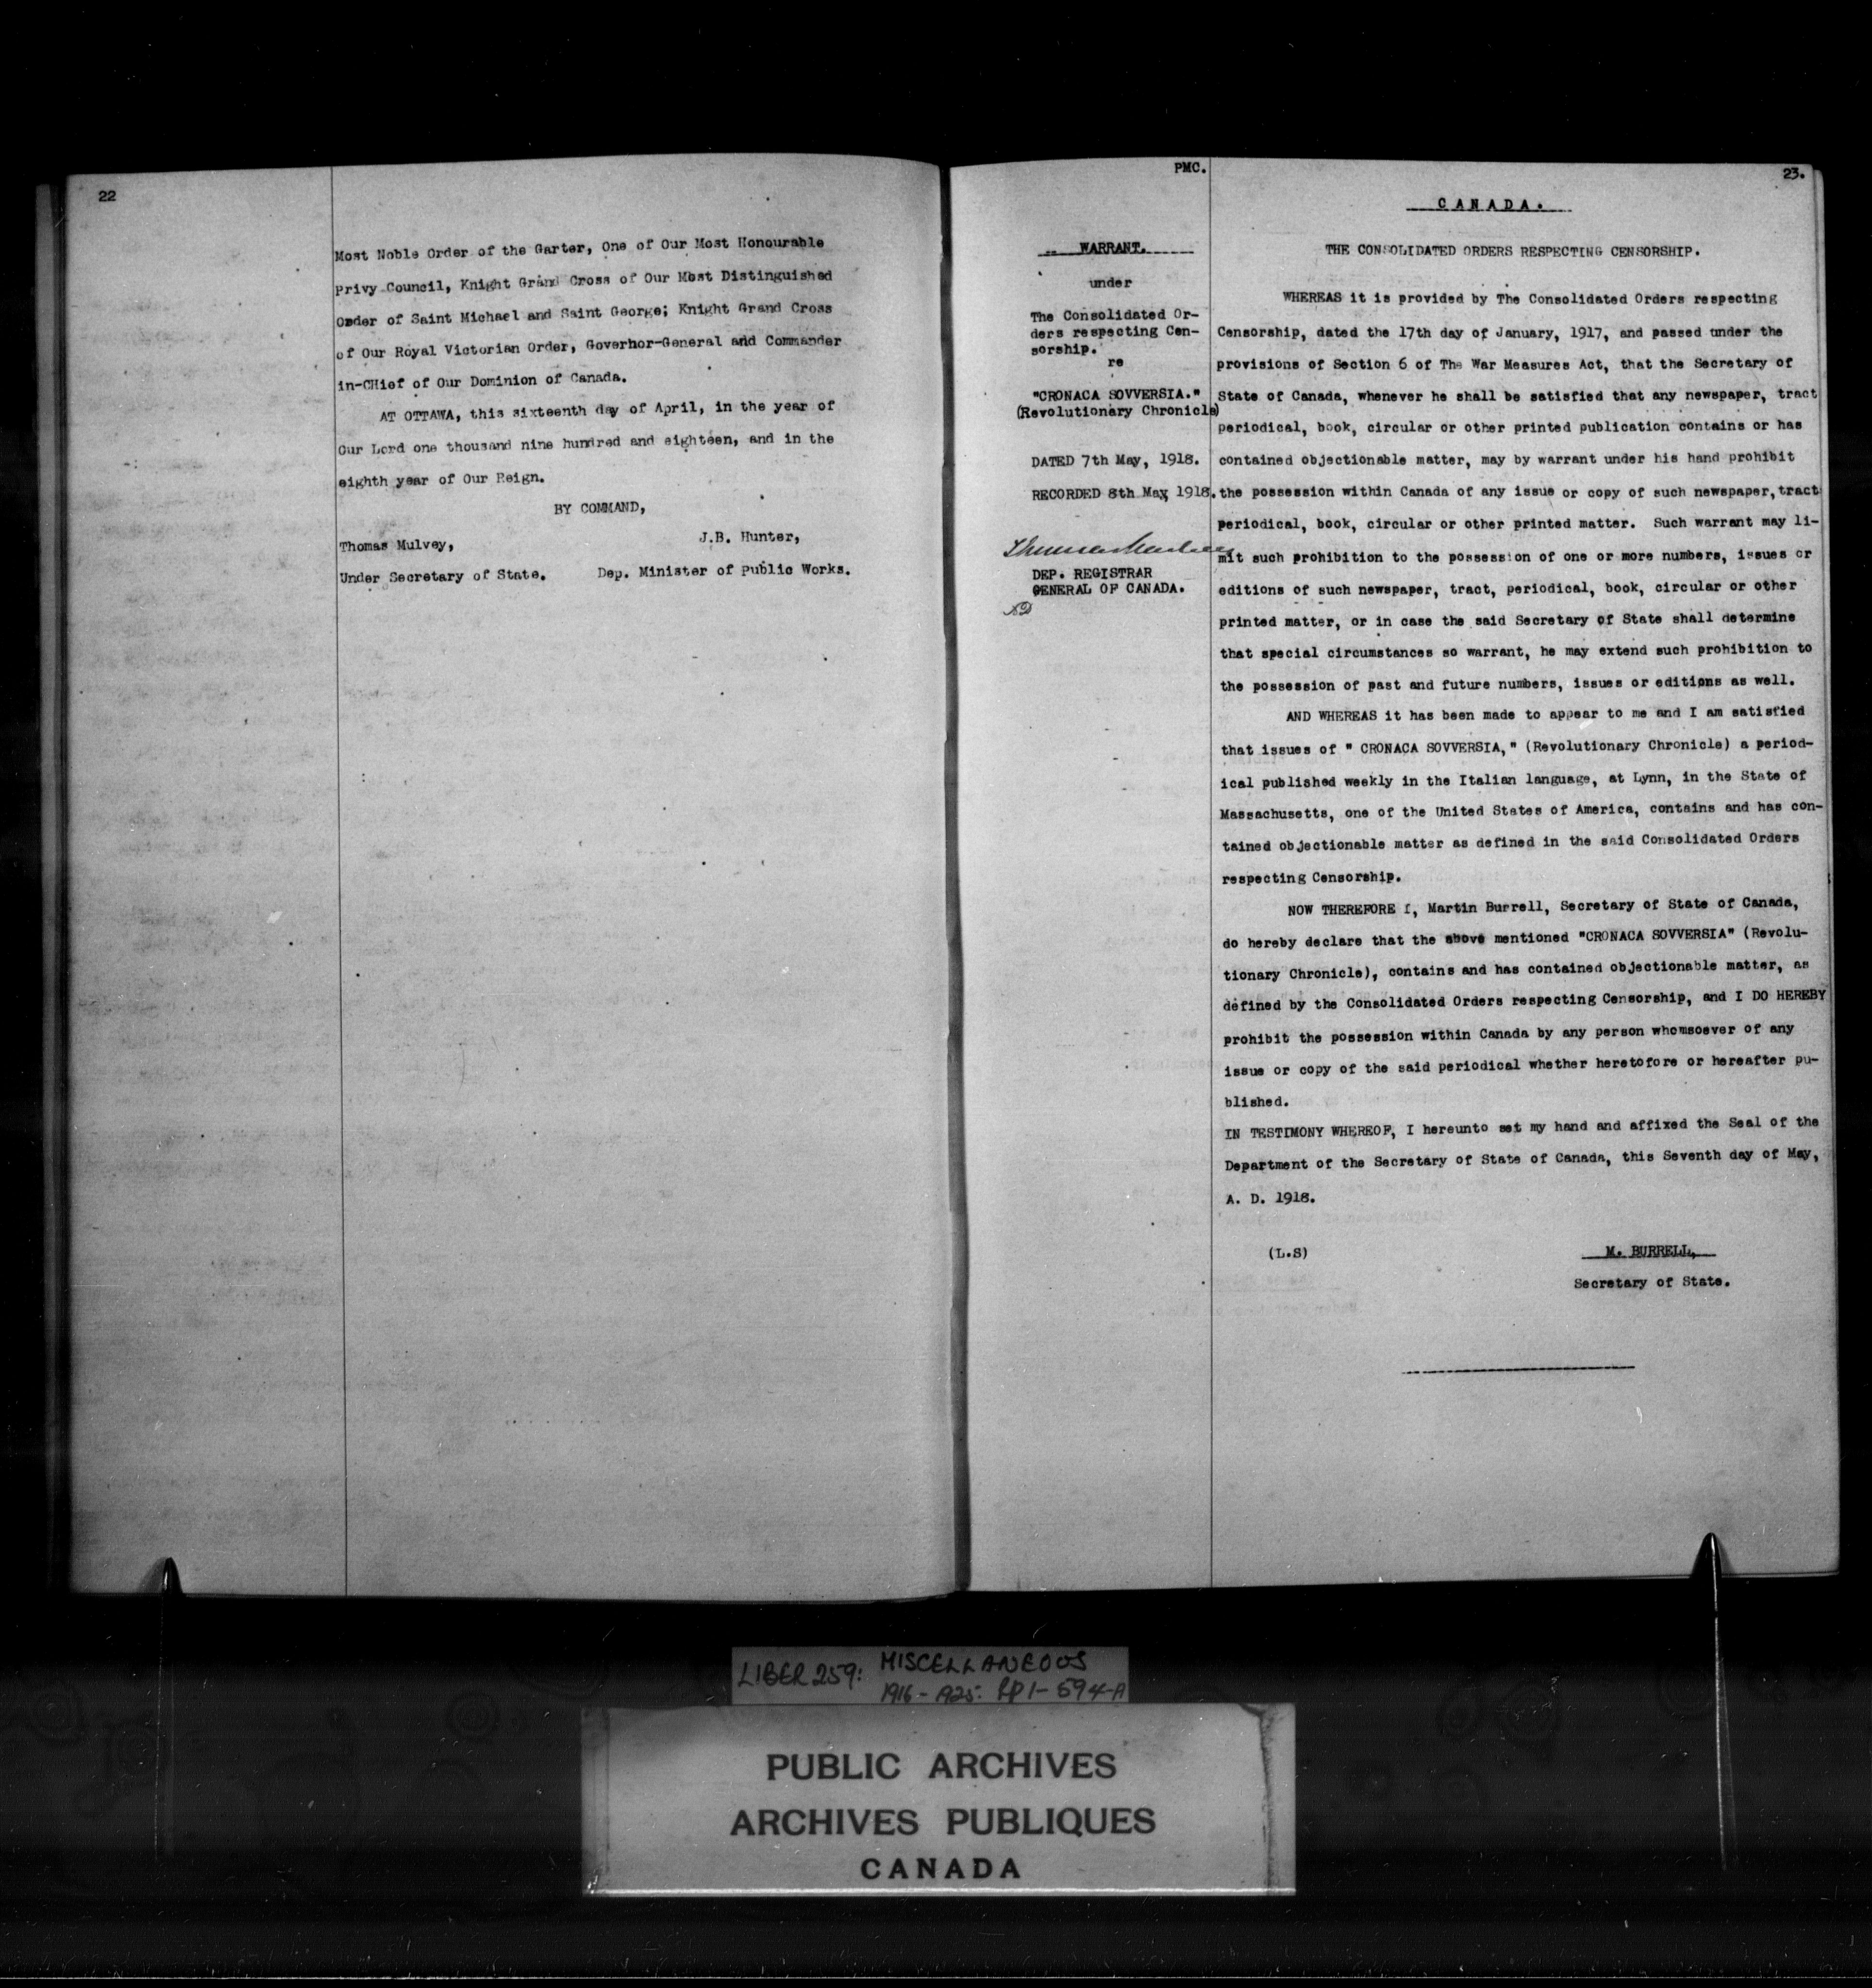 22
Most Noble Order of the Garter, One of Our Most Honourable
Privy Council, Knight Grand Cross of Our Most Distinguished
Order of Saint Michael and Saint George; Knight Grand Cross
of Our Royal Victorian Order, Governor-General and Commander
in-CHief of Our Dominion of Canada.
AT OTTAWA, this sixteenth day of April, in the year of
Our Lord one thousand nine hundred and eighteen, and in the
eighth year of Our Reign.
BY COMMAND,
Thomas Mulvey,
Under Secretary of State.
J.B. Hunter,
Dep. Minister of Public Works.
PMC.
23.
WARRANT.
under
The Consolidated Or-
ders respecting Cen-
sorship.
re
"CRONACA SOVVERSIA."
(Revolutionary Chronicle)
DATED 7th May, 1918.
RECORDED 8th May, 1918.
Thomas Mulvey
DEP. REGISTRAR
GENERAL OF CANADA.
CANADA.
THE CONSOLIDATED ORDERS RESPECTING CENSORSHIP.
WHEREAS it is provided by The Consolidated Orders respecting
Censorship, dated the 17th day of January, 1917, and passed under the
provisions of Section 6 of The War Measures Act, that the Secretary of
State of Canada, whenever he shall be satisfied that any newspaper, tract
periodical, book, circular or other printed publication contains or has
contained objectionable matter, may by warrant under his hand prohibit
the possession within Canada of any issue or copy of such newspaper, tract
periodical, book, circular or other printed matter. Such warrant may li-
mit such prohibition to the possession of one or more numbers, issues or
editions of such newspaper, tract, periodical, book, circular or other
printed matter, or in case the said Secretary of State shall determine
that special circumstances so warrant, he may extend such prohibition to
the possession of past and future numbers, issues or editions as well.
AND WHEREAS it has been made to appear to me and I am satisfied
that issues of " CRONACA SOVVERSIA," (Revolutionary Chronicle) a period-
ical published weekly in the Italian language, at Lynn, in the State of
Massachusetts, one of the United States of America, contains and has con-
tained objectionable matter as defined in the said Consolidated Orders
respecting Censorship.
NOW THEREFORE I, Martin Burrell, Secretary of State of Canada,
do hereby declare that the above mentioned "CRONACA SOVVERSIA" (Revolu-
tionary Chronicle), contains and has contained objectionable matter, as
defined by the Consolidated Orders respecting Censorship, and I DO HEREBY
prohibit the possession within Canada by any person whomsoever of any
issue or copy of the said periodical whether heretofore or hereafter pu-
blished.
IN TESTIMONY WHEREOF, I hereunto set my hand and affixed the Seal of the
Department of the Secretary of State of Canada, this Seventh day of May,
A. D. 1918.
(L.S)
M. BURRELL,
Secretary of State.
LIBER 259: MISCELLANEOUS
1916-1925: pp 1-594-A
PUBLIC ARCHIVES
ARCHIVES PUBLIQUES
CANADA